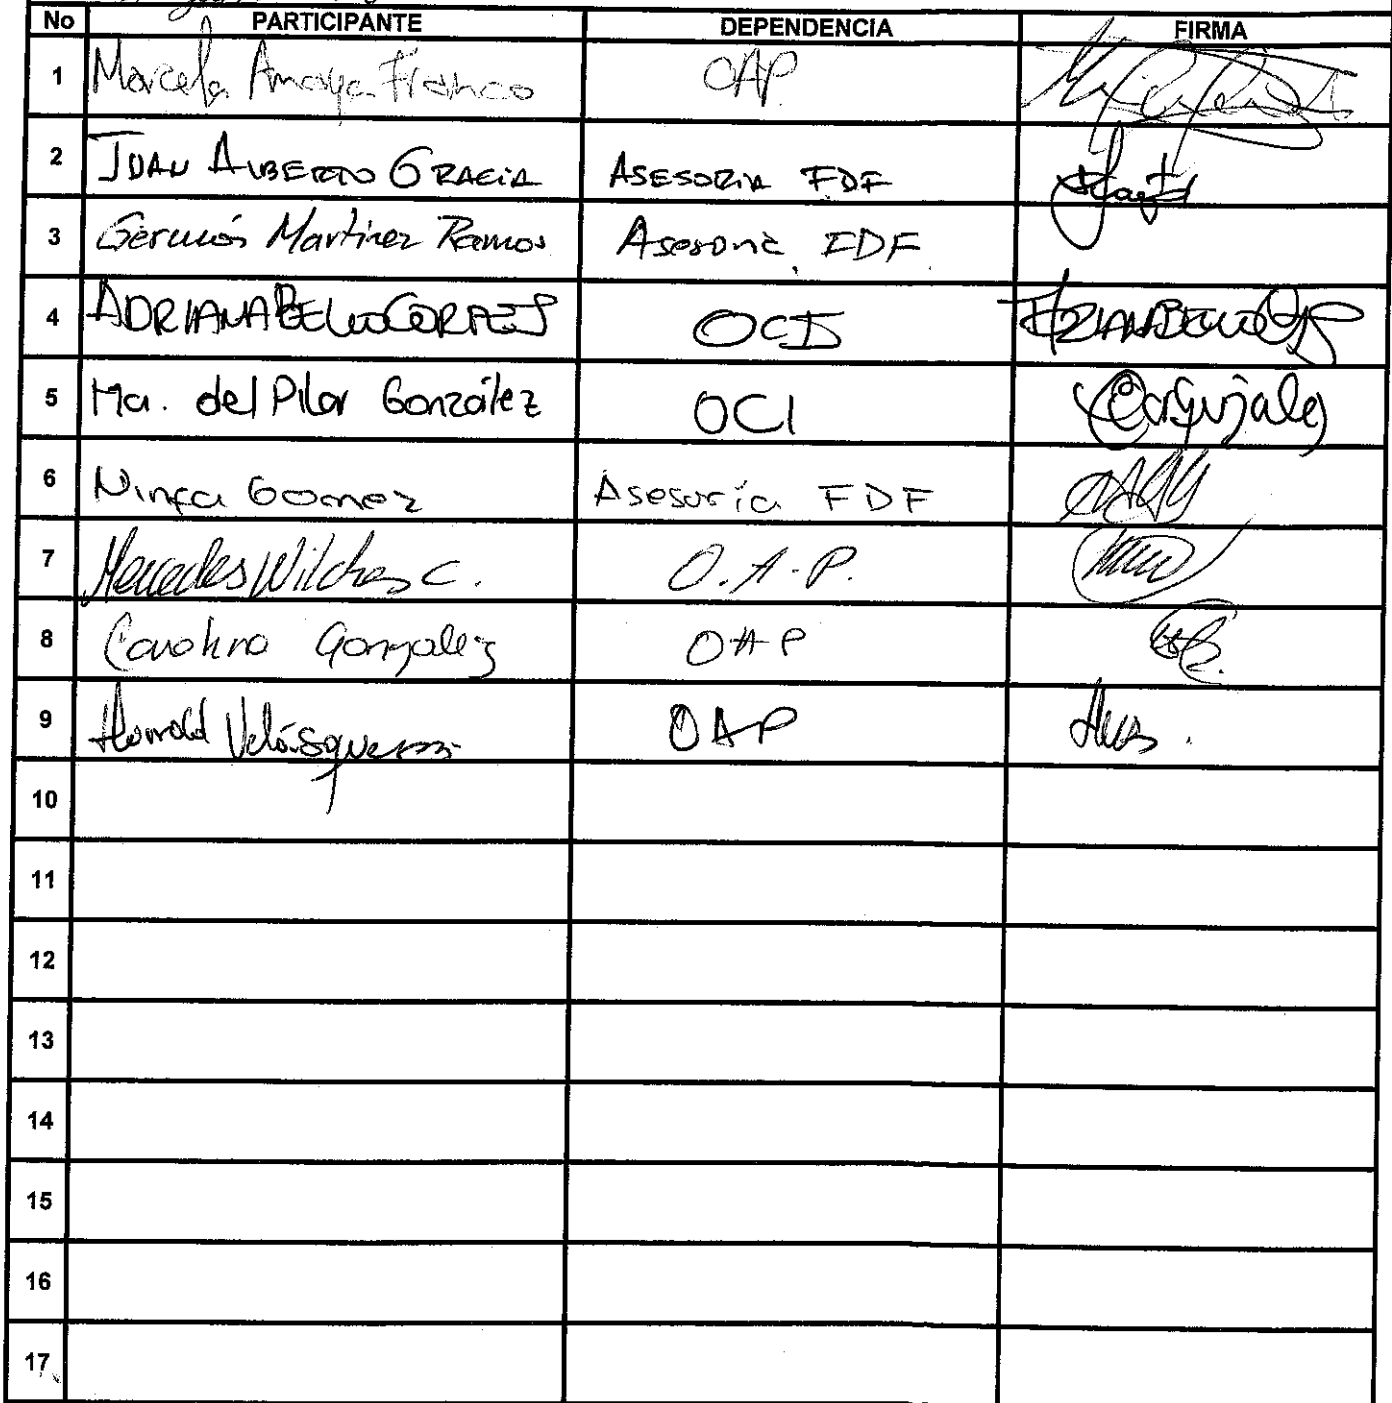 No PARTICIPANTE DEPENDENCIA FIRMA
1 Marcela Amaya Franco OAP
2 JUAN ALBERTO GRACIA ASESORIA FDF
3 Germán Martinez Ramos Asesoria FDF
4 ADRIANA BELLO CORTES OCI
5 Ma. del Pilar González OCI
6 Ninfa Gomez Asesoría FDF
7 Mercedes Wilches C. O.A.P.
8 Carolina Gonzalez OAP
9 Harold Velásquez OAP
10
11
12
13
14
15
16
17